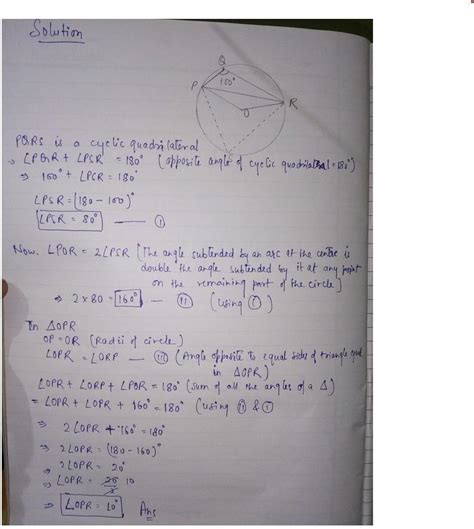 Solution
Q
P
100°
R
O
PQRS is a cyclic quadrilateral
⇒ ∠PQR + ∠PSR = 180° (opposite angle of cyclic quadrilateral = 180°)
⇒ 100° + ∠PSR = 180°
∠PSR = (180 - 100)°
∠PSR = 80° — (I)
Now. ∠POR = 2∠PSR (The angle subtended by an arc at the centre is
double the angle subtended by it at any point
on the remaining part of the circle)
⇒ 2 x 80 = 160° — (II) (using (I))
In ∆OPR
OP = OR (Radii of circle)
∠OPR = ∠ORP — (III) (Angle opposite to equal sides of triangle equal
in ∆OPR)
∠OPR + ∠ORP + ∠POR = 180° (sum of all the angles of a ∆)
= ∠OPR + ∠OPR + 160° = 180° (using (II) & (I))
⇒ 2∠OPR + 160° = 180°
⇒ 2∠OPR = (180 - 160)°
⇒ 2∠OPR = 20°
⇒ ∠OPR = 20 10
2
⇒ ∠OPR = 10° Ans